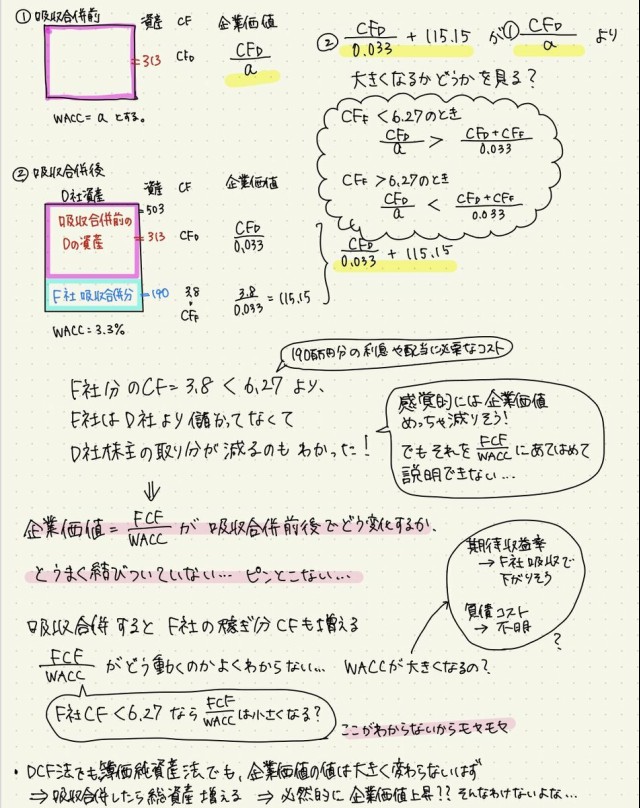 ① 吸収合併前
資産 CF 企業価値
=313 CFD CFD/a
WACC = a とする。
② CFD/0.033 + 115.15 が ① CFD/a より
大きくなるかどうかを見る?
CFF < 6.27のとき
CFD/a > CFD+CFF/0.033
CFF > 6.27のとき
CFD/a < CFD+CFF/0.033
② 吸収合併後
D社資産 資産 CF 企業価値
=503
吸収合併前の
Dの資産
=313 CFD CFD/0.033
F社吸収合併分 =190 3.8 3.8/0.033 = 115.15
CFF
WACC = 3.3%
CFD/0.033 + 115.15
190百万円分の利息や配当に必要なコスト
F社分のCF = 3.8 < 6.27 より、
F社はD社より儲かってなくて
D社株主の取り分が減るのもわかった!
感覚的には企業価値
めっちゃ減りそう!
でもそれをFCF/WACCにあてはめて
説明できない…
⇓
企業価値 = FCF/WACC が 吸収合併前後でどう変化するか、
とうまく結びついていない… ピンとこない…
期待収益率
→ F社吸収で
下がりそう
負債コスト
→ 不明
?
吸収合併すると F社の稼ぎ分CFも増える
FCF/WACC がどう動くのかよくわからない… WACCが大きくなるの?
F社CF < 6.27 なら FCF/WACC は小さくなる?
ここがわからないからモヤモヤ
・DCF法でも簿価純資産法でも、企業価値の値は大きく変わらないはず
⇒ 吸収合併したら総資産増える ⇒ 必然的に企業価値上昇?? そんなわけないよな…